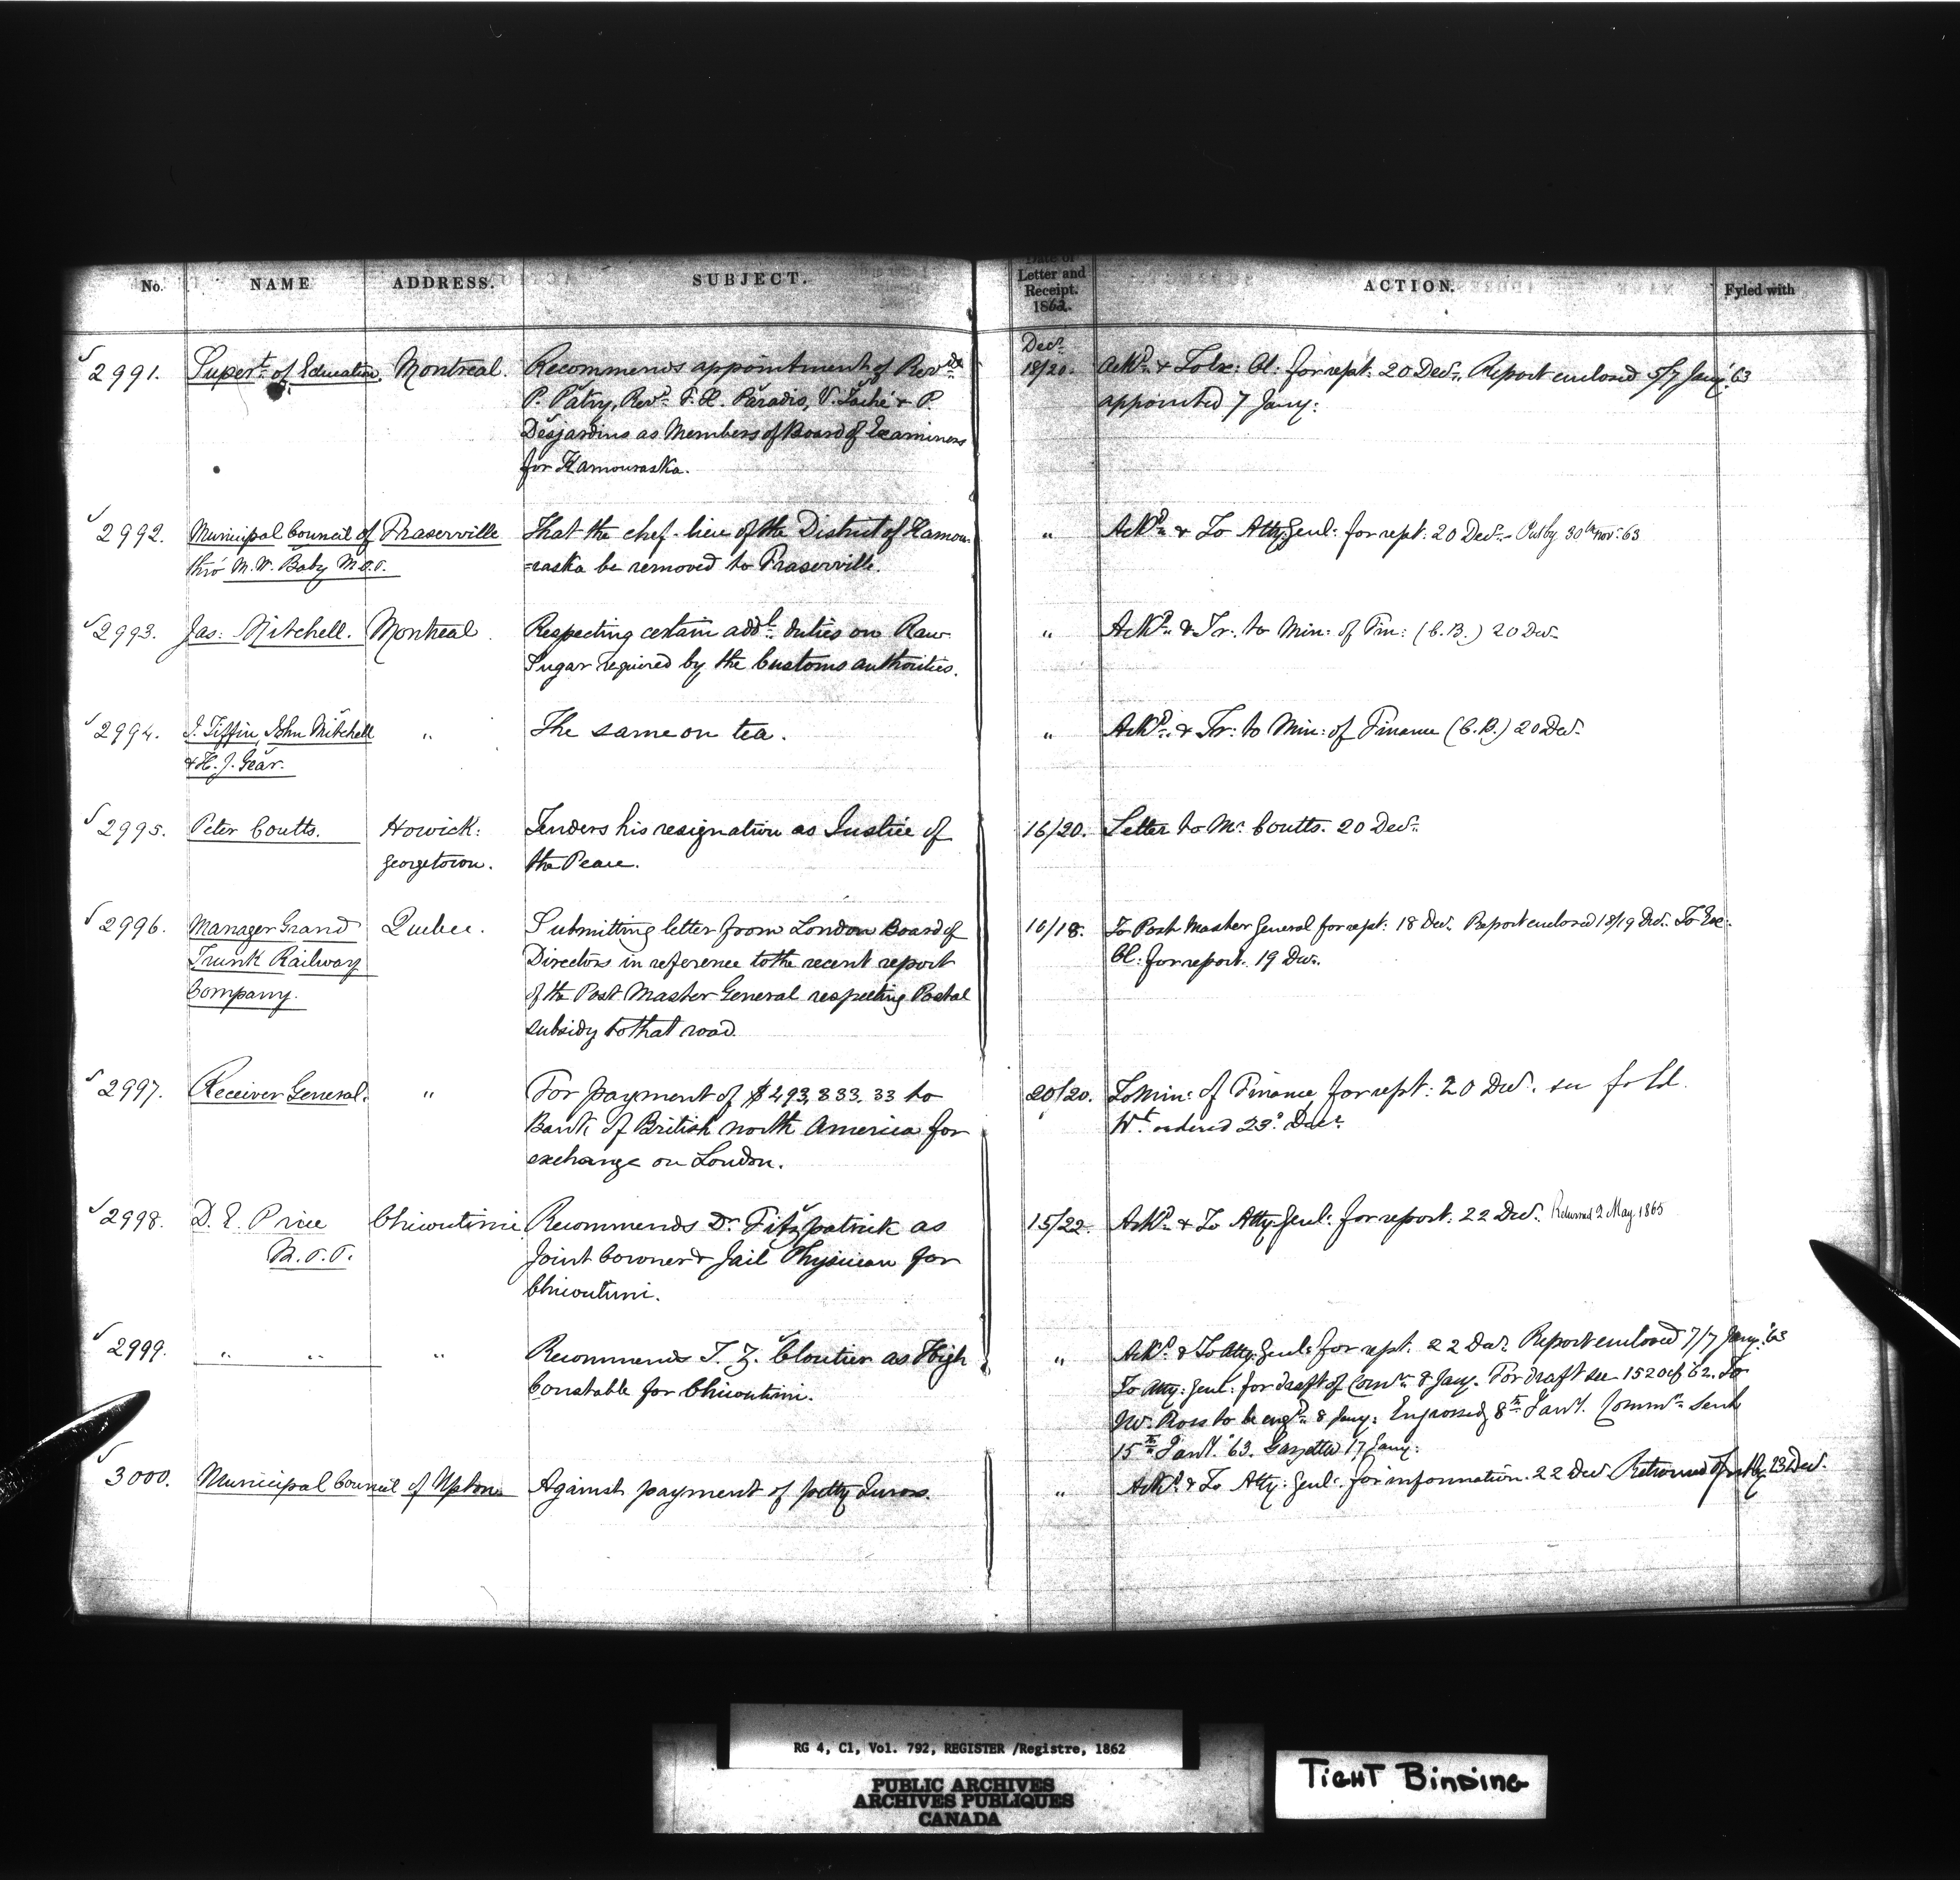 No. NAME ADDRESS. SUBJECT. Date of Letter and Receipt. 1862. ACTION. Fyled with
Decr.
2991. Supert. of Education. Montreal. Recommends appointment of Revds. 18/20. Ackd. & To Ex: Cl: for rept: 20 Decr. Report enclosed 5/7 Jany. '63
P. Patry, Revd. Paradis, V. Taché & P. appointed 7 Jany:
Desjardins as Members of Board of Examiners
for Kamouraska.
2992. Municipal Council of Fraserville That the chef-lieu of the District of Kamou- " Ackd. & To Atty. Genl: for rept: 20 Decr. - Put by 30th Nov: 63
thro' M. W. Baby M.P.P. =raska be removed to Fraserville.
2993. Jas: Mitchell. Montreal. Respecting certain addl. duties on Raw " Ackd. & Tr. to Min: of Fin: (C.B.) 20 Decr.
Sugar required by the Customs authorities.
2994. J. Tiffin, John Mitchell " The same on tea. " Ackd. & Tr: to Min: of Finance (C.B.) 20 Decr.
& H. J. Gear.
2995. Peter Coutts. Howick: Tenders his resignation as Justice of 16/20. Letter to Mr. Coutts. 20 Decr.
Georgetown. the Peace.
2996. Manager Grand Quebec. Submitting letter from London Board of 16/18. To Post Master General for rept: 18 Decr. Report enclosed 18/19 Decr. To Exe:
Trunk Railway Directors in reference to the recent report Cl: for report. 19 Decr.
Company. of the Post Master General respecting Postal
subsidy to that road.
2997. Receiver General. " For payment of $493,833.33 to 20/20. To Min: of Finance for rept: 20 Decr. see fold.
Bank of British North America for Wt. ordered 23d. Decr.
exchange on London.
2998. D. E. Price Chicoutimi Recommends Dr. Fitzpatrick as 15/22. Ackd. & To Atty. Genl: for report: 22 Decr. Returned 2 May 1865
M.P.P. Joint Coroner & Jail Physician for
Chicoutimi.
2999. " " " Recommends T. Z. Cloutier as High " Ackd. & To Atty. Genl: for rept. 22 Decr. Report enclosed 7/7 Jany. '63
Constable for Chicoutimi. To Atty: Genl: for draft of Comn. 8 Jany. For draft see 1520 of '62. To
Mr. Ross to be engd. 8 Jany: Engrossed 8th Jany. Commn. Sent
15th Jany. '63. Gazetted 17 Jany:
3000. Municipal Council of Upton Against payment of petty Jurors. " Ackd. & To Atty: Genl: for information. 22 Decr. Returned & put by 23 Decr.
RG 4, C1, Vol. 792, REGISTER /Registre, 1862
PUBLIC ARCHIVES
ARCHIVES PUBLIQUES
CANADA
TIGHT BINDING